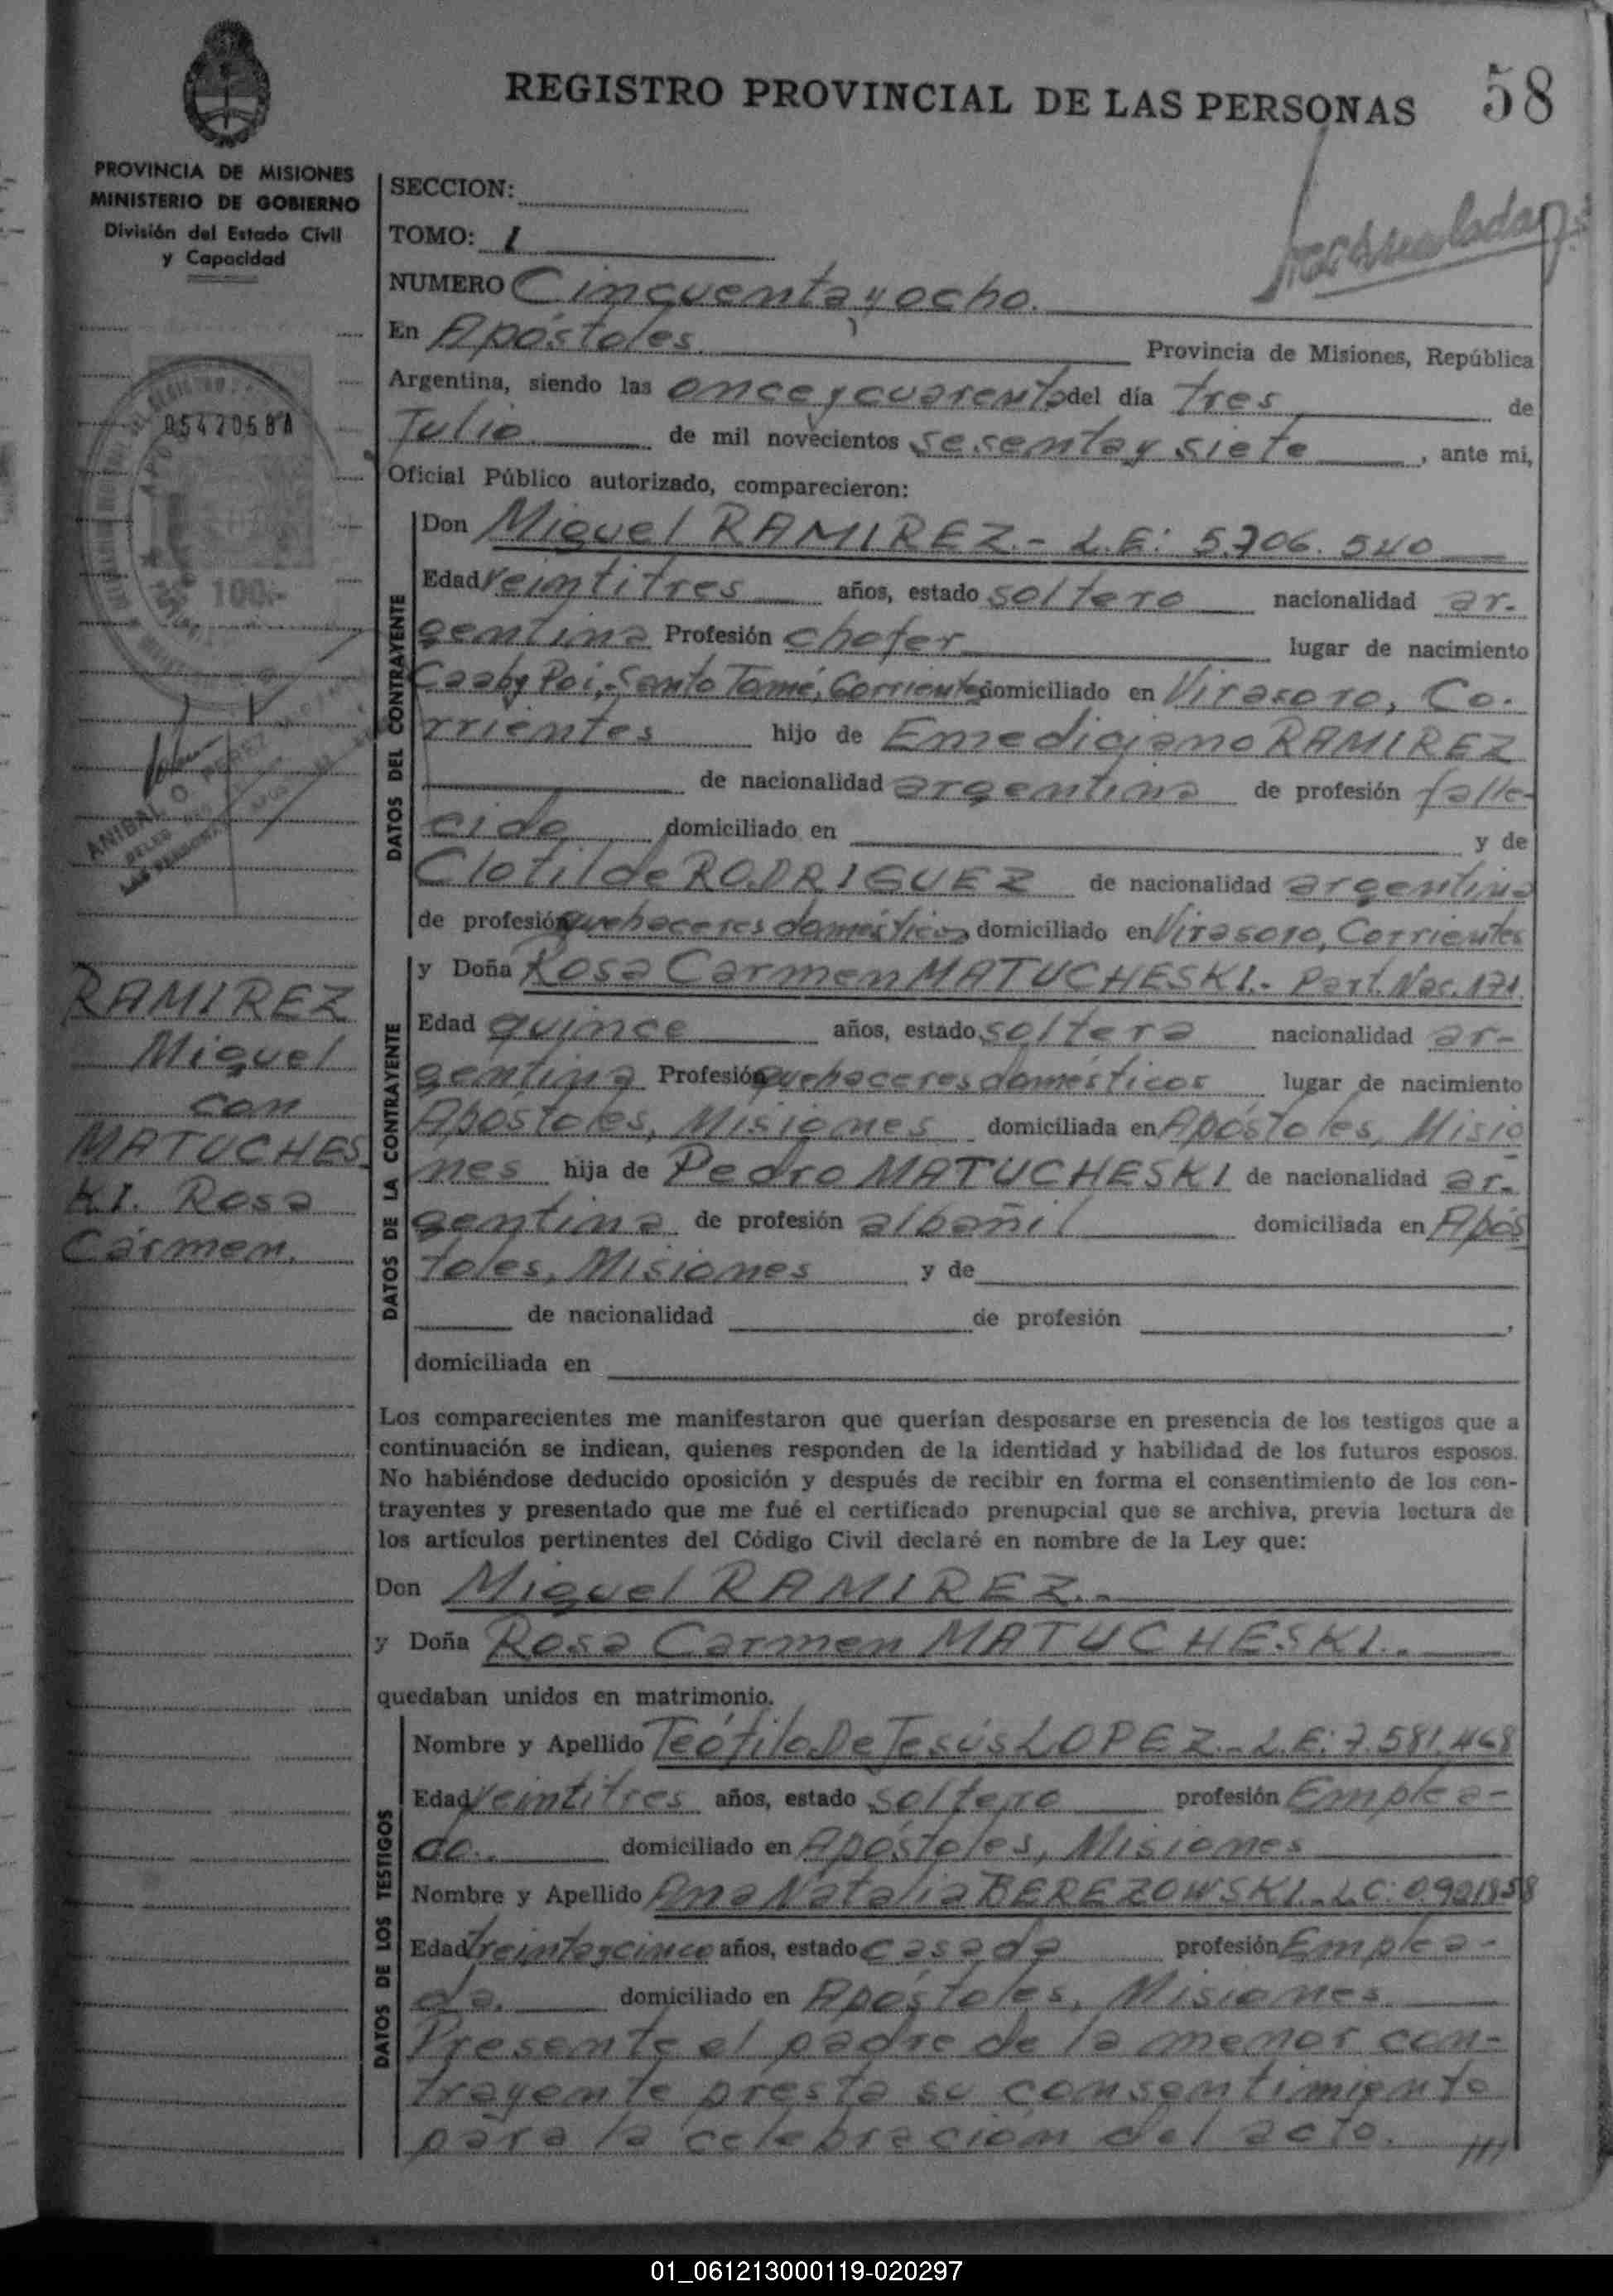 REGISTRO PROVINCIAL DE LAS PERSONAS 58
PROVINCIA DE MISIONES
MINISTERIO DE GOBIERNO
División del Estado Civil
y Capacidad
SECCION:
TOMO: 1
NUMERO Cincuenta y ocho.
En Apóstoles. Provincia de Misiones, República
Argentina, siendo las once y cuarenta del día tres de
Julio de mil novecientos sesenta y siete, ante mi,
Oficial Público autorizado, comparecieron:
05420681
100.-
ANIBAL O. PEREZ
DATOS DEL CONTRAYENTE
Don Miguel RAMIREZ.- L.E: 5.706.540
Edad veintitres años, estado soltero nacionalidad ar-
gentina Profesión chofer lugar de nacimiento
Caaby Poi,-Santo Tomé, Corrientes domiciliado en Virasoro, Co-
rrientes hijo de Emedigiano RAMIREZ
de nacionalidad argentina de profesión falle-
cido domiciliado en y de
Clotilde RODRIGUEZ de nacionalidad argentina
de profesión quehaceres domésticos domiciliado en Virasoro, Corrientes
DATOS DE LA CONTRAYENTE
y Doña Rosa Carmen MATUCHESKI.- Part. Nac. 171.
Edad quince años, estado soltera nacionalidad ar-
gentina Profesión quehaceres domésticos lugar de nacimiento
Apóstoles, Misiones domiciliada en Apóstoles, Misio
nes hija de Pedro MATUCHESKI de nacionalidad ar-
gentina de profesión albañil domiciliada en Após
toles, Misiones y de
de nacionalidad de profesión ,
domiciliada en
RAMIREZ
Miguel
con
MATUCHES
KI. Rosa
Cármen.
Los comparecientes me manifestaron que querían desposarse en presencia de los testigos que a
continuación se indican, quienes responden de la identidad y habilidad de los futuros esposos.
No habiéndose deducido oposición y después de recibir en forma el consentimiento de los con-
trayentes y presentado que me fué el certificado prenupcial que se archiva, previa lectura de
los artículos pertinentes del Código Civil declaré en nombre de la Ley que:
Don Miguel RAMIREZ.-
y Doña Rosa Carmen MATUCHESKI.-
quedaban unidos en matrimonio.
DATOS DE LOS TESTIGOS
Nombre y Apellido Teófilo De Jesús LOPEZ.- L.E: 7.581.468
Edad veintitres años, estado soltero profesión Emplea-
do.. domiciliado en Apóstoles, Misiones
Nombre y Apellido Ana Natalia BEREZOWSKI.- L.C: 0.921858
Edad treinta y cinco años, estado casada profesión Emplea-
da. domiciliado en Apóstoles, Misiones
Presente el padre de la menor con-
trayente presta su consentimiento
para la celebración del acto. ///
01_061213000119-020297